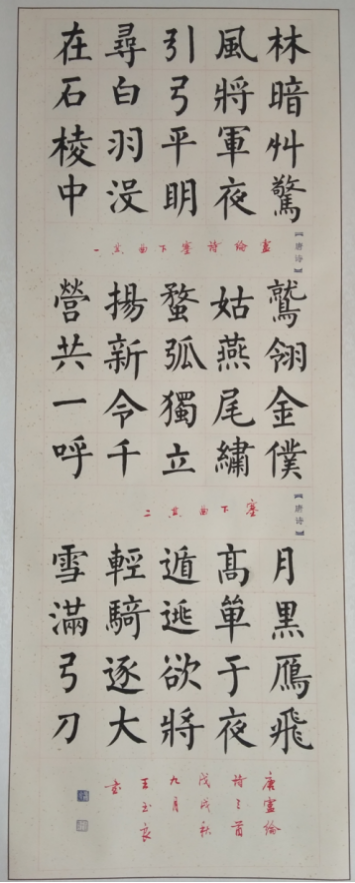 林暗艸驚
風將軍夜
引弓平明
尋白羽没
在石棱中
【唐诗】
盧綸詩塞下曲其一
鷲翎金僕
姑燕尾繡
蝥弧獨立
揚新令千
營共一呼
【唐诗】
塞下曲其二
月黑鴈飛
髙單于夜
遁逃欲將
輕騎逐大
雪滿弓刀
唐盧綸
詩三首
戊戌秋
九月
王玉良
書